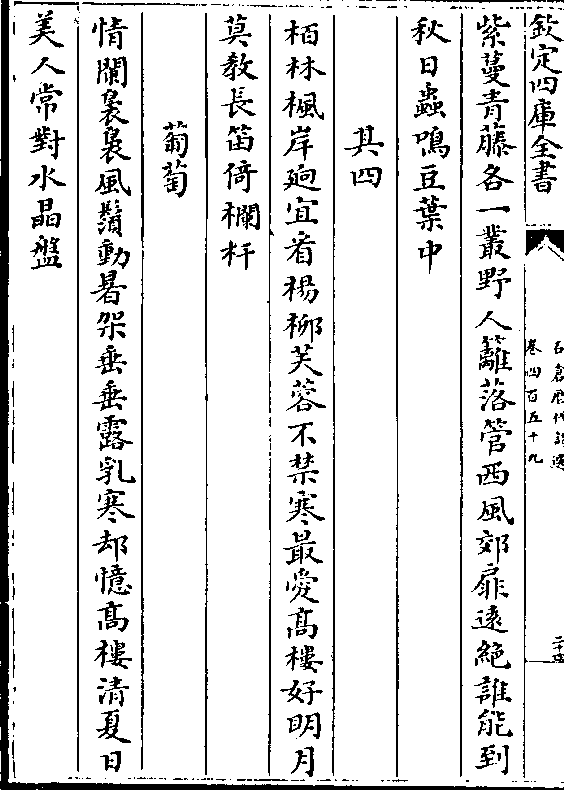 欽定四庫全書
石倉歴代詩選
卷四百五十九
紫蔓青藤各一叢野人籬落管西風郊扉遠絶誰能到
秋日蟲鳴豆葉中
其四
栢林楓岸廻宜看楊柳芙蓉不禁寒最愛髙樓好明月
莫教長笛倚欄杆
葡萄
情閣裊裊風鬚動暑架垂垂露乳寒却憶髙樓清夏日
美人常對水晶盤